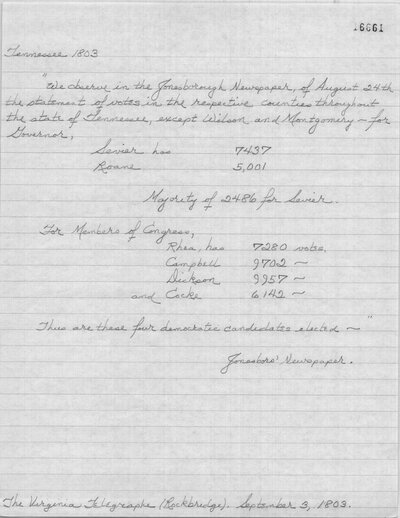 16661
Tennessee 1803
"We observe in the Jonesborough Newspaper, of August 24th
the statement of votes in the respective counties throughout
the state of Tennessee, except Wilson and Montgomery ~ for
Governor,
Sevier has 7437
Roane 5,001
Majority of 2486 for Sevier.
For Members of Congress,
Rhea, has 7280 votes.
Campbell 9702 ~
Dickson 9957 ~
and Cocke 6142 ~
Thus are these four democratic candidates elected ~"
Jonesboro' Newspaper.
The Virginia Telegraphe (Rockbridge). September 3, 1803.